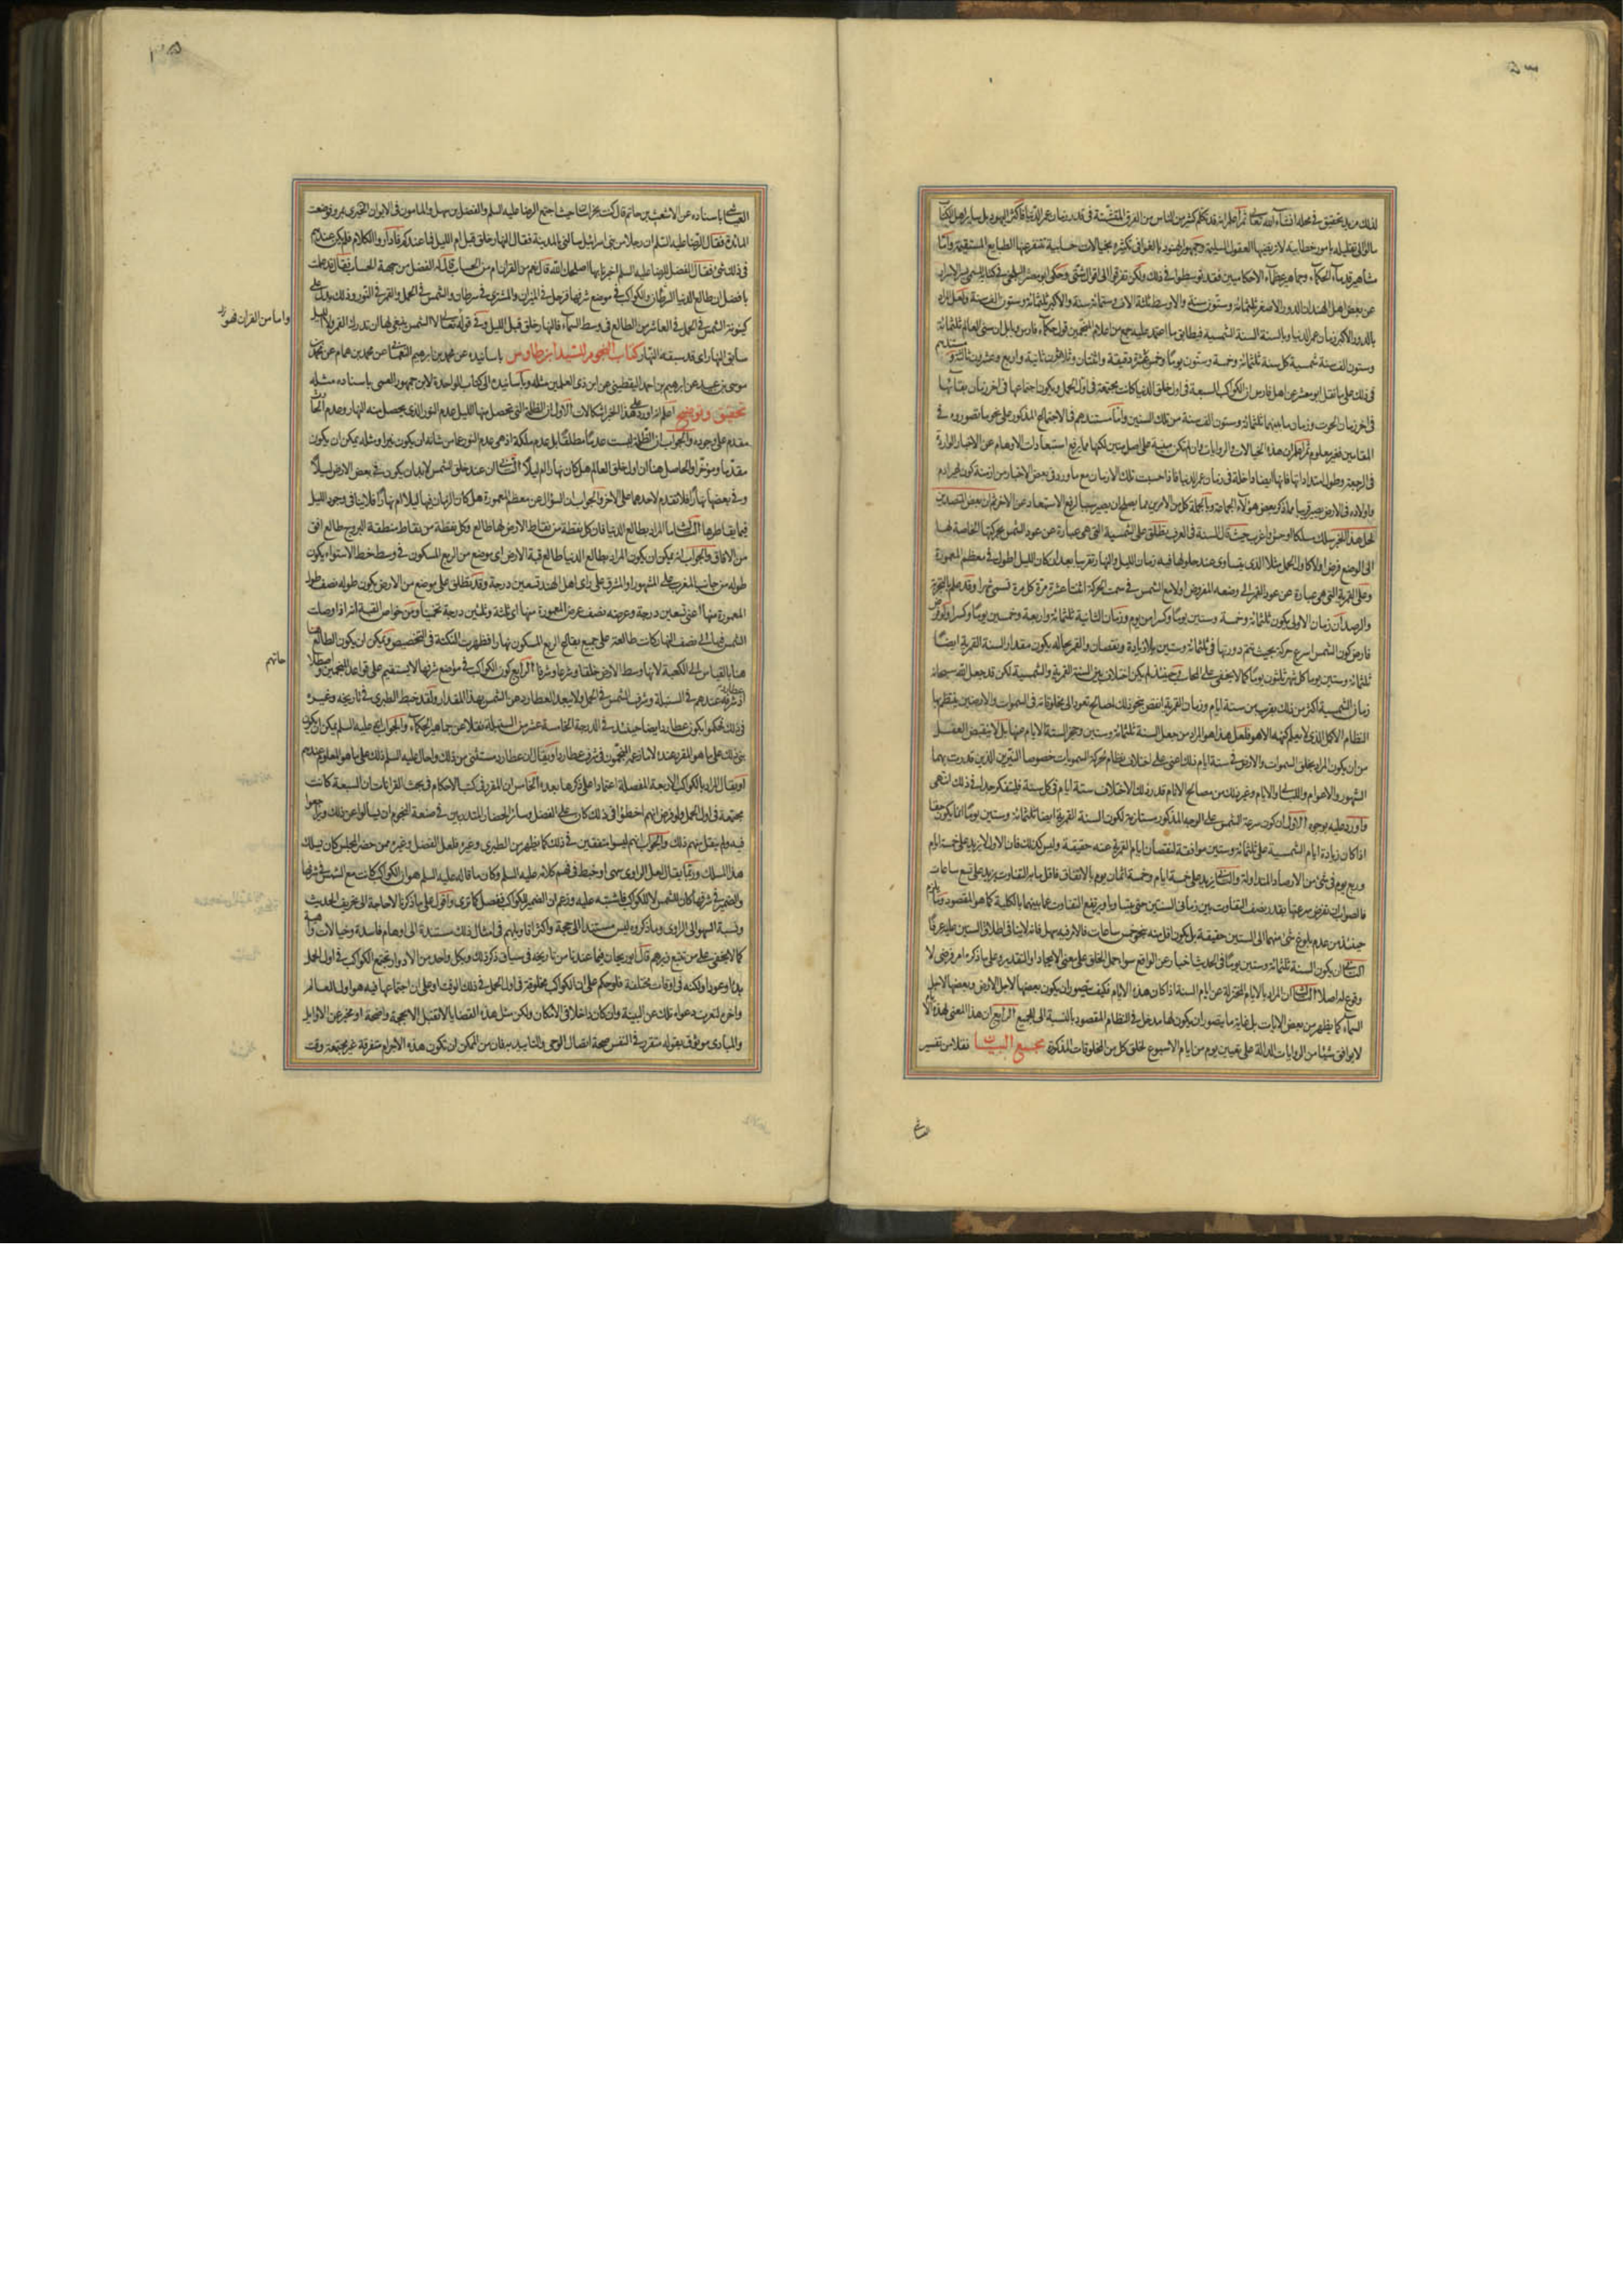 لذلك مزيد تحقيق في محله انشاء الله تعالى ثم اعلم انه قد تكلم كثير من الناس من الفرق المتشتتة في قدر زمان عمر الدنيا فاكثر اليهود بل سائر اهل الكتاب
مالوا الى تقليله بامور خطابية لا ترتضيها العقول السليمة وجمهور الهنود بالغوا في تكثيره بخيالات حسابية تتنفر عنها الطبايع المستقيمة واما
مشاهير قدماء الحكماء وجماهير عظماء الاحكاميين فقد توسطوا في ذلك ولكن تفرقوا الى اقوال شتى وحكى ابو معشر البلخي في كتابه المسمى بسر الاسرار
عن بعض اهل الهند ان الدور الاصغر ثلثمائة وستون سنة والاوسط ثلثة الاف وستمائة سنة والاكبر ثلثمائة وستون الف سنة ولعل المراد
بالدور الاكبر زمان عمر الدنيا وبالسنة السنة الشمسية فيطابق ما اعتمد عليه جمع من اعلام المنجمين من قول حكماء فارس وبابل ان سني العالم ثلثمائة
وستون الف سنة شمسية كل سنة ثلثمائة وخمسة وستون يوما وخمس عشرة دقيقة واثنتان وثلاثون ثانية واربع وعشرون ثالثة ومستندهم
في ذلك على ما نقل ابو معشر عن اهل فارس ان الكواكب السبعة في اول خلق الدنيا كانت مجتمعة في اول الحمل ويكون اجتماعها في اخر زمان بقائها
في اخر زمان الحوت وزمان ما بينهما ثلثمائة وستون الف سنة من تلك السنين واما مستندهم في الاجتماع المذكور على نحو ما تصوروه في
المقامين فغير معلوم ثم اعلم ان هذه الخيالات والروايات وان لم تكن مبنية على اصل متين لكنها مما يرفع استبعادات الاوهام عن الاخبار الواردة
في الرجعة وطول امتداداتها فانها ايضا داخلة في زمان عمر الدنيا فاذا حسبت تلك الازمان مع ما ورد في بعض الاخبار من ازمنة كون غير ادم
واولاده في الارض يصير قريبا مما ذكره بعض هؤلاء الجماعة وبالجملة كل من الامرين مما يصلح ان يصير سببا لرفع الاستبعاد عن الاخر ثم ان بعض المتصدين
لحل هذا الخبر سلك مسلكا اوحش واغرب حيث قال السنة في العرف تطلق على الشمسية التي هي عبارة عن عود الشمس بحركتها الخاصة لها
الى الوضع فرض اولا كاول الحمل مثلا الذي يتساوى عند حلولها فيه زمان الليل والنهار تقريبا بعد ان كان الليل اطول في معظم المعمورة
وعلى القمرية التي هي عبارة عن عود القمر الى وضعه المفروض اولا مع الشمس في سمت الحركة اثنتا عشرة مرة كل مرة تسمى شهرا وقد علم بالتجربة
والرصد ان زمان الاولى يكون ثلثمائة وخمسة وستين يوما وكسرا من يوم وزمان الثانية ثلثمائة واربعة وخمسين يوما وكسرا ولو فرض
فارض كون الشمس اسرع حركة بحيث تتم دورتها في ثلثمائة وستين بلا زيادة ونقصان والقمر بحاله يكون مقدار السنة القمرية ايضا
ثلثمائة وستين يوما كل شهر ثلثون يوما كما لا يخفى على المحاسب فحينئذ لم يكن اختلاف بين السنة القمرية والشمسية لكن قد جعل الله سبحانه
زمان الشمسية اكثر من ذلك بقريب من ستة ايام وزمان القمرية انقص بنحو ذلك لمصالح تعود الى مخلوقاته في السموات والارضين ينتظم بها
النظام الاكمل الذي لا يعلم كنهه الا هو فلعل هذا هو المراد من جعل السنة ثلثمائة وستين وحجز الستة الايام منها بل لا ينقبض العقل
من ان يكون المراد بخلق السموات والارض في ستة ايام ذلك اعني على اختلاف نظام حركة السمويات خصوصا النيرين الذين قدرت بهما
الشهور والاعوام والليالي والايام وغير ذلك من مصالح الانام قدر ذلك الاختلاف ستة ايام في كل سنة فليتفكر جدا في ذلك انتهى
واورد عليه بوجوه الاول ان كون سرعة الشمس على الوجه المذكور مستلزمة لكون السنة القمرية ايضا ثلثمائة وستين يوما انما يكون حقا
اذا كان زيادة ايام الشمسية على ثلثمائة وستين موافقة لنقصان ايام القمرية عنه حقيقة وليس كذلك فان الاول لا يزيد على خمسة ايام
وربع يوم في شئ من الارصاد المتداولة والثاني يزيد على خمسة ايام وخمسة اثمان يوم بالاتفاق فاقل ما به التفاوت يزيد على تسع ساعات
فالصواب ان تفرض سرعتها بقدر نصف التفاوت بين زماني السنتين حتى يتساويا ويرتفع التفاوت عما بينهما بالكلية كما هو المقصود وما يلزم
حينئذ من عدم بلوغ شئ منهما الى الستين حقيقة بل يكون اقل منه بنحو خمس ساعات فالامر فيه سهل فانه لا ينافي اطلاق الستين عليه عرفا
الثاني ان يكون السنة ثلثمائة وستين يوما في الحديث اخبار عن الواقع سواء حمل الخلق على معنى الايجاد او التقدير وعلى ما ذكره امر فرضي لا
وقوع له اصلا الثالث ان المراد بالايام المختزلة عن ايام السنة اذا كان هذه الايام فكيف يتصور ان يكون بعضها لاجل الارض وبعضها لاجل
السماء كما يظهر من بعض الايات بل غاية ما يتصور ان يكون لها مدخل في النظام المقصود بالنسبة الى الجميع الرابع ان هذا المعنى لهذه الايام
لا يوافق شيئا من الروايات الدالة على تعيين يوم من ايام الاسبوع لخلق كل من المخلوقات المذكورة مجمع البيان نقلا من تفسير
العياشي باسناده عن الاشعث بن حاتم قال كنت بخراسان حيث اجتمع الرضا عليه السلم والفضل بن سهل والمامون في الايوان الحبري بمرو فوضعت
المائدة فقال الرضا عليه السلم ان رجلا من بني اسرائيل سالني بالمدينة فقال النهار خلق قبل ام الليل فما عندكم قال فاداروا الكلام فلم يكن عندهم
في ذلك شئ فقال الفضل للرضا عليه السلم اخبرنا بها اصلحك الله قال نعم من القران ام من الحساب قال له الفضل من جهة الحساب فقال قد علمت
يا فضل ان طالع الدنيا السرطان والكواكب في موضع شرفها فزحل في الميزان والمشتري في سرطان والشمس في الحمل والقمر في الثور وذلك يدل على
كينونة الشمس في الحمل في العاشر من الطالع في وسط السماء فالنهار خلق قبل الليل وفي قوله تعالى لا الشمس ينبغي لها ان تدرك القمر ولا الليل
وا ما من القران فهو
سابق النهار اي قد سبقه النهار كتاب النجوم للسيد ابن طاوس باسانيده عن محمد بن ابرهيم النعماني عن محمد بن همام عن محمد بن
موسى بن عبيد عن ابرهيم بن احمد اليقطيني عن ابن ذي العلمين مثله وباسانيده الى كتاب الواحدة لابن جمهور العمي باسناده مثله
تحقيق وتوضيح اعلم انه اورد على هذا الخبر اشكالات الاول ان الظلمة التي تحصل منها الليل عدم النور الذي يحصل منه النهار وعدم الحادث
مقدم على وجوده والجواب ان الظلمة ليست عدما مطلقا بل عدم ملكة اذ هي عدم النور عما من شانه ان يكون نيرا ومثله يمكن ان يكون
مقدما ومؤخرا والحاصل هنا ان اول خلق العالم هل كان نهارا ام ليلا الثاني ان عند خلق الشمس لا بد ان يكون في بعض الارض ليلا
وفي بعضها نهارا فلا تقدم لاحدهما على الاخر والجواب ان السؤال عن معظم المعمورة هل كان الزمان فيها ليلا ام نهارا فلا ينافي وجود الليل
فيما يقاطرها الثالث ما المراد بطالع الدنيا فان كل نقطة من نقاط الارض لها طالع وكل نقطة من نقاط منطقة البروج طالع افق
من الافاق والجواب انه يمكن ان يكون المراد بطالع الدنيا طالع قبة الارض اي موضع من الربع المسكون في وسط خط الاستواء يكون
طوله من جانب المغرب على المشهور او المشرق على راى اهل الهند تسعين درجة وقد تطلق على موضع من الارض يكون طوله نصف طول
المعمورة منها اعني تسعين درجة وعرضه نصف عرض المعمورة منها اي ثلثة وثلثين درجة تخمينا ومن خواص القبة انه اذا وصلت
الشمس فيها الى نصف النهار كانت طالعة على جميع بقاع الربع المسكون نهارا فظهرت النكتة في التخصيص ويمكن ان يكون الطالع هنا
هنا بالقياس الى الكعبة لانها وسط الارض خلقا وشرعا وشرفا الرابع كون الكواكب في مواضع شرفها لا يستقيم على قواعد المنجمين واصطلاحاتهم
اذ عطارد شرفه عندهم في السنبلة وشرف الشمس في الحمل ولا يبعد العطارد عن الشمس بهذا المقدار ولقد خبط الطبري في تاريخه وغيره
في ذلك فحكموا بكون عطارد ايضا حينئذ في الدرجة الخامسة عشر من السنبلة نقلا عن جماهير الحكماء والجواب انه عليه السلم يمكن ان يكون
بنى ذلك على ما هو المقرر عنده لا ما زعم المنجمون في شرف عطارد او يقال ان عطارد مستثنى من ذلك واحال عليه السلم ذلك على ما هو المعلوم عندهم
او يقال المراد بالكواكب الاربعة المفصلة اعتمادا على ذكرها بعده الخامس ان المقرر في كتب الاحكام في بحث القرانات ان السبعة كانت
مجتمعة في اول الحمل ولو فرض انهم اخطؤا في ذلك كان على الفضل وسائر الحضار المتدربين في صنعة النجوم ان يسالوا عن ذلك ويراجعوا
فيه ولم ينقل منهم ذلك والجواب انهم ليسوا متفقين في ذلك كما يظهر من الطبري وغيره فلعل الفضل وغيره ممن حضر المجلس كان يسلك
هذا المسلك وربما يقال لعل الراوي سهى او خبط في فهم كلامه عليه السلم وكان ما قاله عليه السلم هو ان الكواكب كانت مع الشمس في شرفها
والضمير في شرفها كان للشمس لا للكواكب فاشتبه عليه وزعم ان الضمير للكواكب ففصل كما ترى واقول على ما ذكرنا لا حاجة الى تحريف الحديث
ونسبة السهو الى الراوي وما ذكروه ليس مستندا الى حجة واكثر اقاويلهم في امثال ذلك مستندة الى اوهام فاسدة وخيالات واهية
كما لا يخفى على من تتبع زبرهم قال ابو ريحان فيما عندنا من تاريخه في سياق ذكر ذلك وبكل واحد من الادوار تجتمع الكواكب في اول الحمل
بدءا وعودا ولكنه في اوقات مختلفة فلو حكم على ان الكواكب مخلوقة في اول الحمل في ذلك الوقت او على ان اجتماعها فيه هو اول العالم
واخره لتعرت دعواه تلك عن البينة وان كان داخلا في الامكان ولكن مثل هذه القضايا لا تقبل الا بحجة واضحة او مخبر عن الاوايل
والمبادي موثوق بقوله متقرر في النفس صحة اتصال الوحي والتاييد به فان من الممكن ان تكون هذه الاجرام متفرقة غير مجتمعة وقت